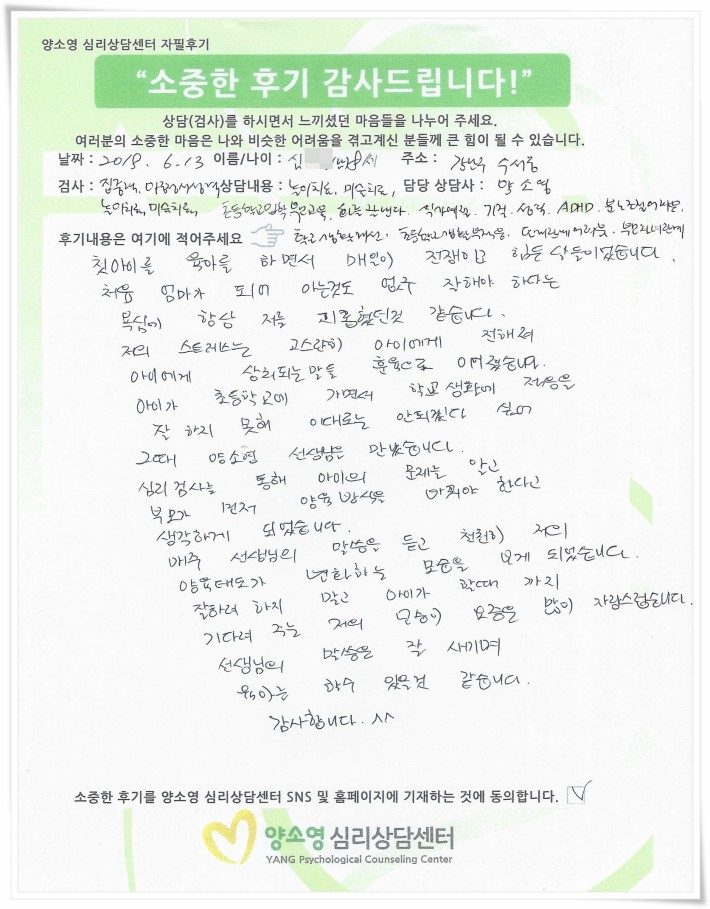 양소영 심리상담센터 자필후기
“소중한 후기 감사드립니다!”
상담(검사)를 하시면서 느끼셨던 마음들을 나누어 주세요.
여러분의 소중한 마음은 나와 비슷한 어려움을 겪고계신 분들께 큰 힘이 될 수 있습니다.
날짜 : 2018. 6. 13 이름/나이 : 심 8세 주소 : 강남구 수서동
검사 : 집중력, 상담내용 : 놀이치료, 미술치료, 담당 상담사 : 양소영
놀이치료, 미술치료, 초등학교입학 기질. 성격. ADHD.
후기내용은 여기에 적어주세요
첫아이를 육아를 하면서 매일이 전쟁이고 힘든 날들이었습니다.
처음 엄마가 되어 아는것도 없구 잘해야 하다는
욕심에 항상 저를 괴롭혔던것 같습니다.
저의 스트레스는 고스란히 아이에게 전해져
아이에게 상처되는 말들 훈육으로 이어졌습니다.
아이가 초등학교에 가면서 학교 생활에 적응을
잘 하지 못해 이대로는 안되겠다 싶어
그때 양소영 선생님을 만났습니다.
심리 검사를 통해 아이의 문제를 알고
부모가 먼저 양육 방식을 바꿔야 한다고
생각하게 되었습니다.
매주 선생님의 말씀을 듣고 천천히 저의
양육태도가 변화하는 모습을 보게 되었습니다.
잘하려 하지 말고 아이가 할때 까지
기다려 주는 저의 모습이 요즘은 많이 자랑스럽습니다.
선생님의 말씀을 잘 새기며
육아를 할수 있을것 같습니다.
감사합니다. ^^
소중한 후기를 양소영 심리상담센터 SNS 및 홈페이지에 기재하는 것에 동의합니다.
양소영 심리상담센터
YANG Psychological Counseling Center